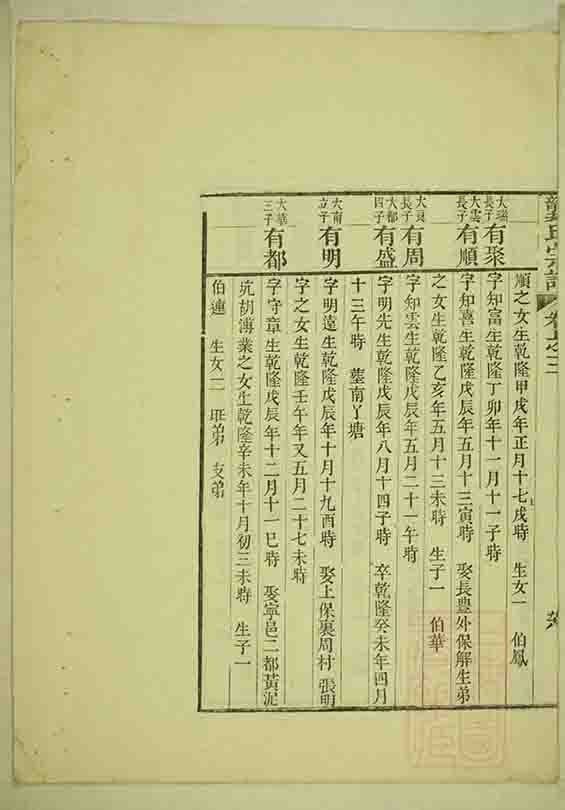 龔氏宗譜 卷之三
順之女生乾隆甲戌年正月十七戌時 生女一 伯鳳
大瑞長子 有聚 字知富生乾隆丁卯年十一月十一子時
大雲長子 有順 字知喜生乾隆戊辰年五月十三寅時 娶長豊外保解生弟
之女生乾隆乙亥年五月十三未時 生子一 伯華
大良長子 有周 字知雲生乾隆戊辰年五月二十一午時
大都四子 有盛 字明先生乾隆戊辰年八月十四子時 卒乾隆癸未年四月
十三午時 塟南丫塘
大南立子 有明 字明遠生乾隆戊辰年十月十九酉時 娶上保裏周村 張明
字之女生乾隆壬午年又五月二十七未時
大華三子 有都 字守章生乾隆戊辰年十二月十一巳時 娶寧邑二都黃泥
坑胡溥業之女生乾隆辛未年十月初三未時 生子一
伯連 生女二 旺弟 支弟